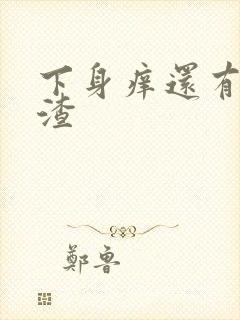 下身痒還有
渣
鄭魯